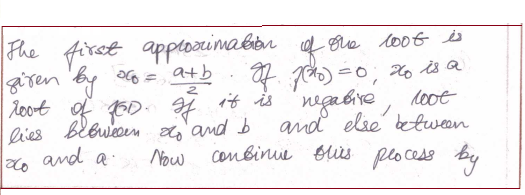 The first approximation of the root is
given by x₀ = a+b/2 . If f(x₀) = 0, x₀ is a
root of f(x). If it is negative, root
lies between x₀ and b and else between
x₀ and a. Now continue this process by